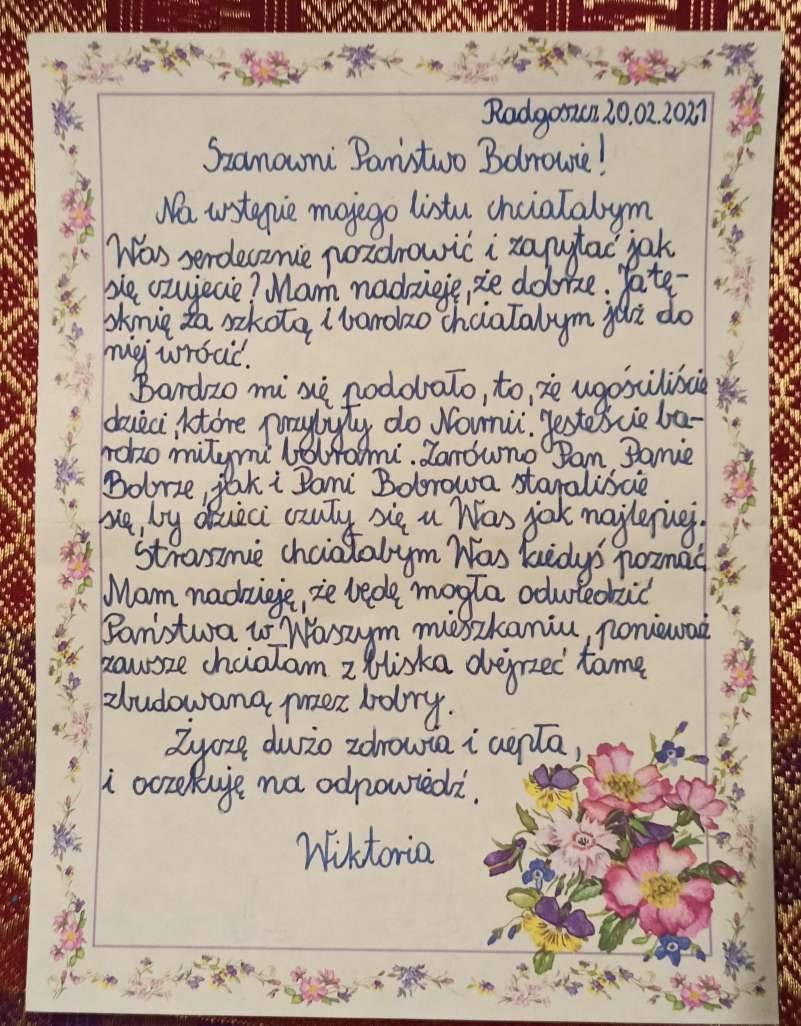 Radgoszcz 20.02.2021
Szanowni Państwo Bobrowie!
Na wstępie mojego listu chciałabym
Was serdecznie pozdrowić i zapytać jak
się czujecie? Mam nadzieję, że dobrze. Ja tę-
sknię za szkołą i bardzo chciałabym już do
niej wrócić.
Bardzo mi się podobało, to, że ugościliście
dzieci, które przybyły do Narnii. Jesteście ba-
rdzo miłymi bobrami. Zarówno Pan Panie
Bobrze, jak i Pani Bobrowa staraliście
się, by dzieci czuły się u Was jak najlepiej.
Strasznie chciałabym Was kiedyś poznać.
Mam nadzieję, że będę mogła odwiedzić
Państwa w Waszym mieszkaniu, ponieważ
zawsze chciałam z bliska obejrzeć tamę
zbudowaną przez bobry.
Życzę dużo zdrowia i ciepła,
i oczekuję na odpowiedź.
Wiktoria